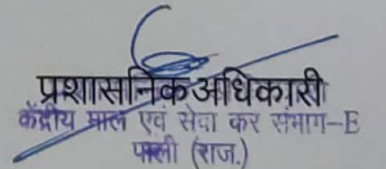 प्रशासनिक अधिकारी
केंद्रीय माल एवं सेवा कर संभाग-E
पाली (राज.)